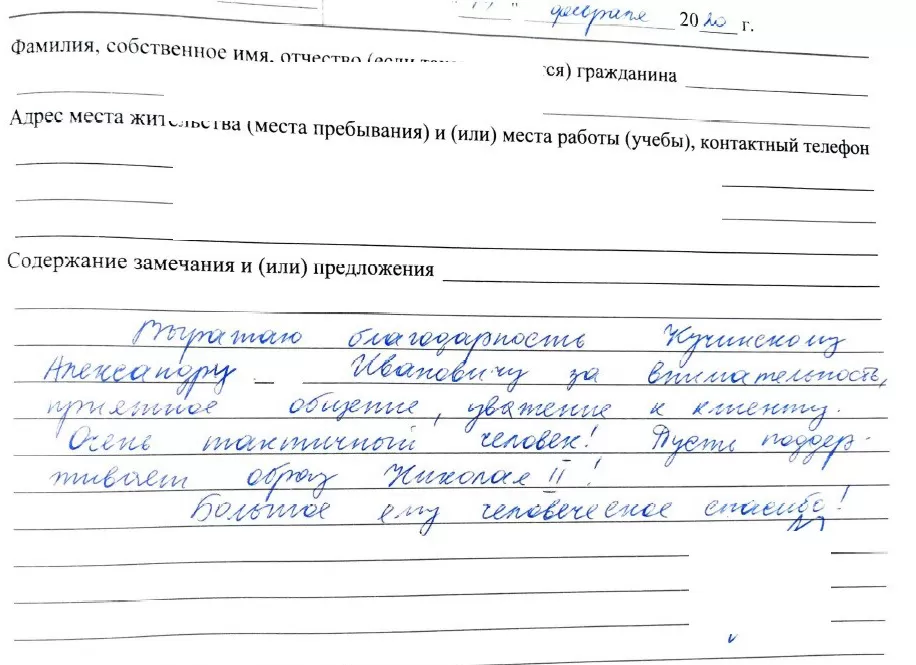 февраля 2020 г.
Фамилия, собственное имя, отчество (если ся) гражданина
Адрес места жительства (места пребывания) и (или) места работы (учебы), контактный телефон
Содержание замечания и (или) предложения
Выражаю благодарность Кучинскому
Александру Ивановичу за внимательность,
приятное общение, уважение к клиенту.
Очень тактичный человек! Пусть поддер-
живает образ Николая II!
Большое ему человеческое спасибо!